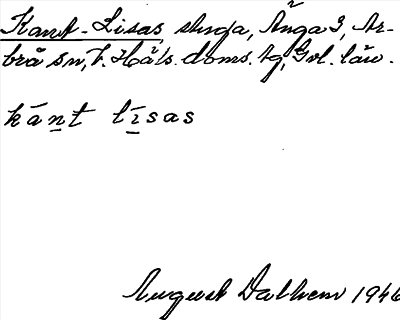 Kant-Lisas stuga, Änga 3, Ar-
brå sn, V. Häls. doms. tg, Gvl. län.
kánt lisas
August Dalhem 1946